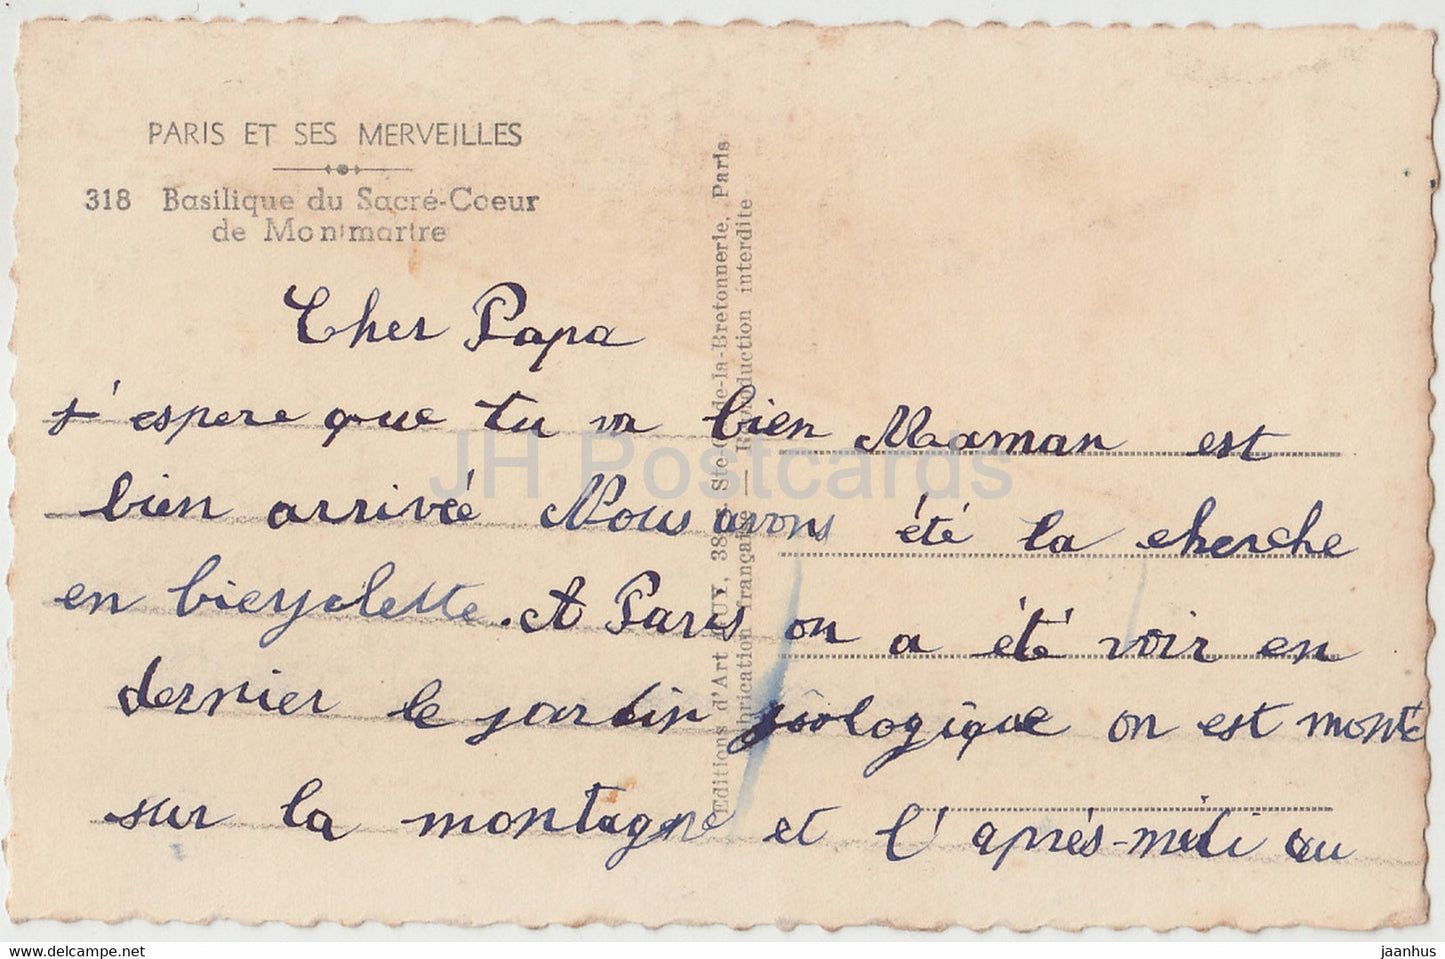 PARIS ET SES MERVEILLES
318 Basilique du Sacré-Coeur
de Montmartre
Cher Papa
j'espere que tu va bien Maman est
bien arrivée Nous avons été la cherche
en bicyclette. A Paris on a été voir en
dernier le jardin zoologique on est monté
sur la montagne et l'après-midi au
Editions d'Art GUY, 38, Ste-C de-la-Bretonnerie, Paris
Fabrication française — Reproduction interdite
JH Postcards
hippostcard.com
jaanhus